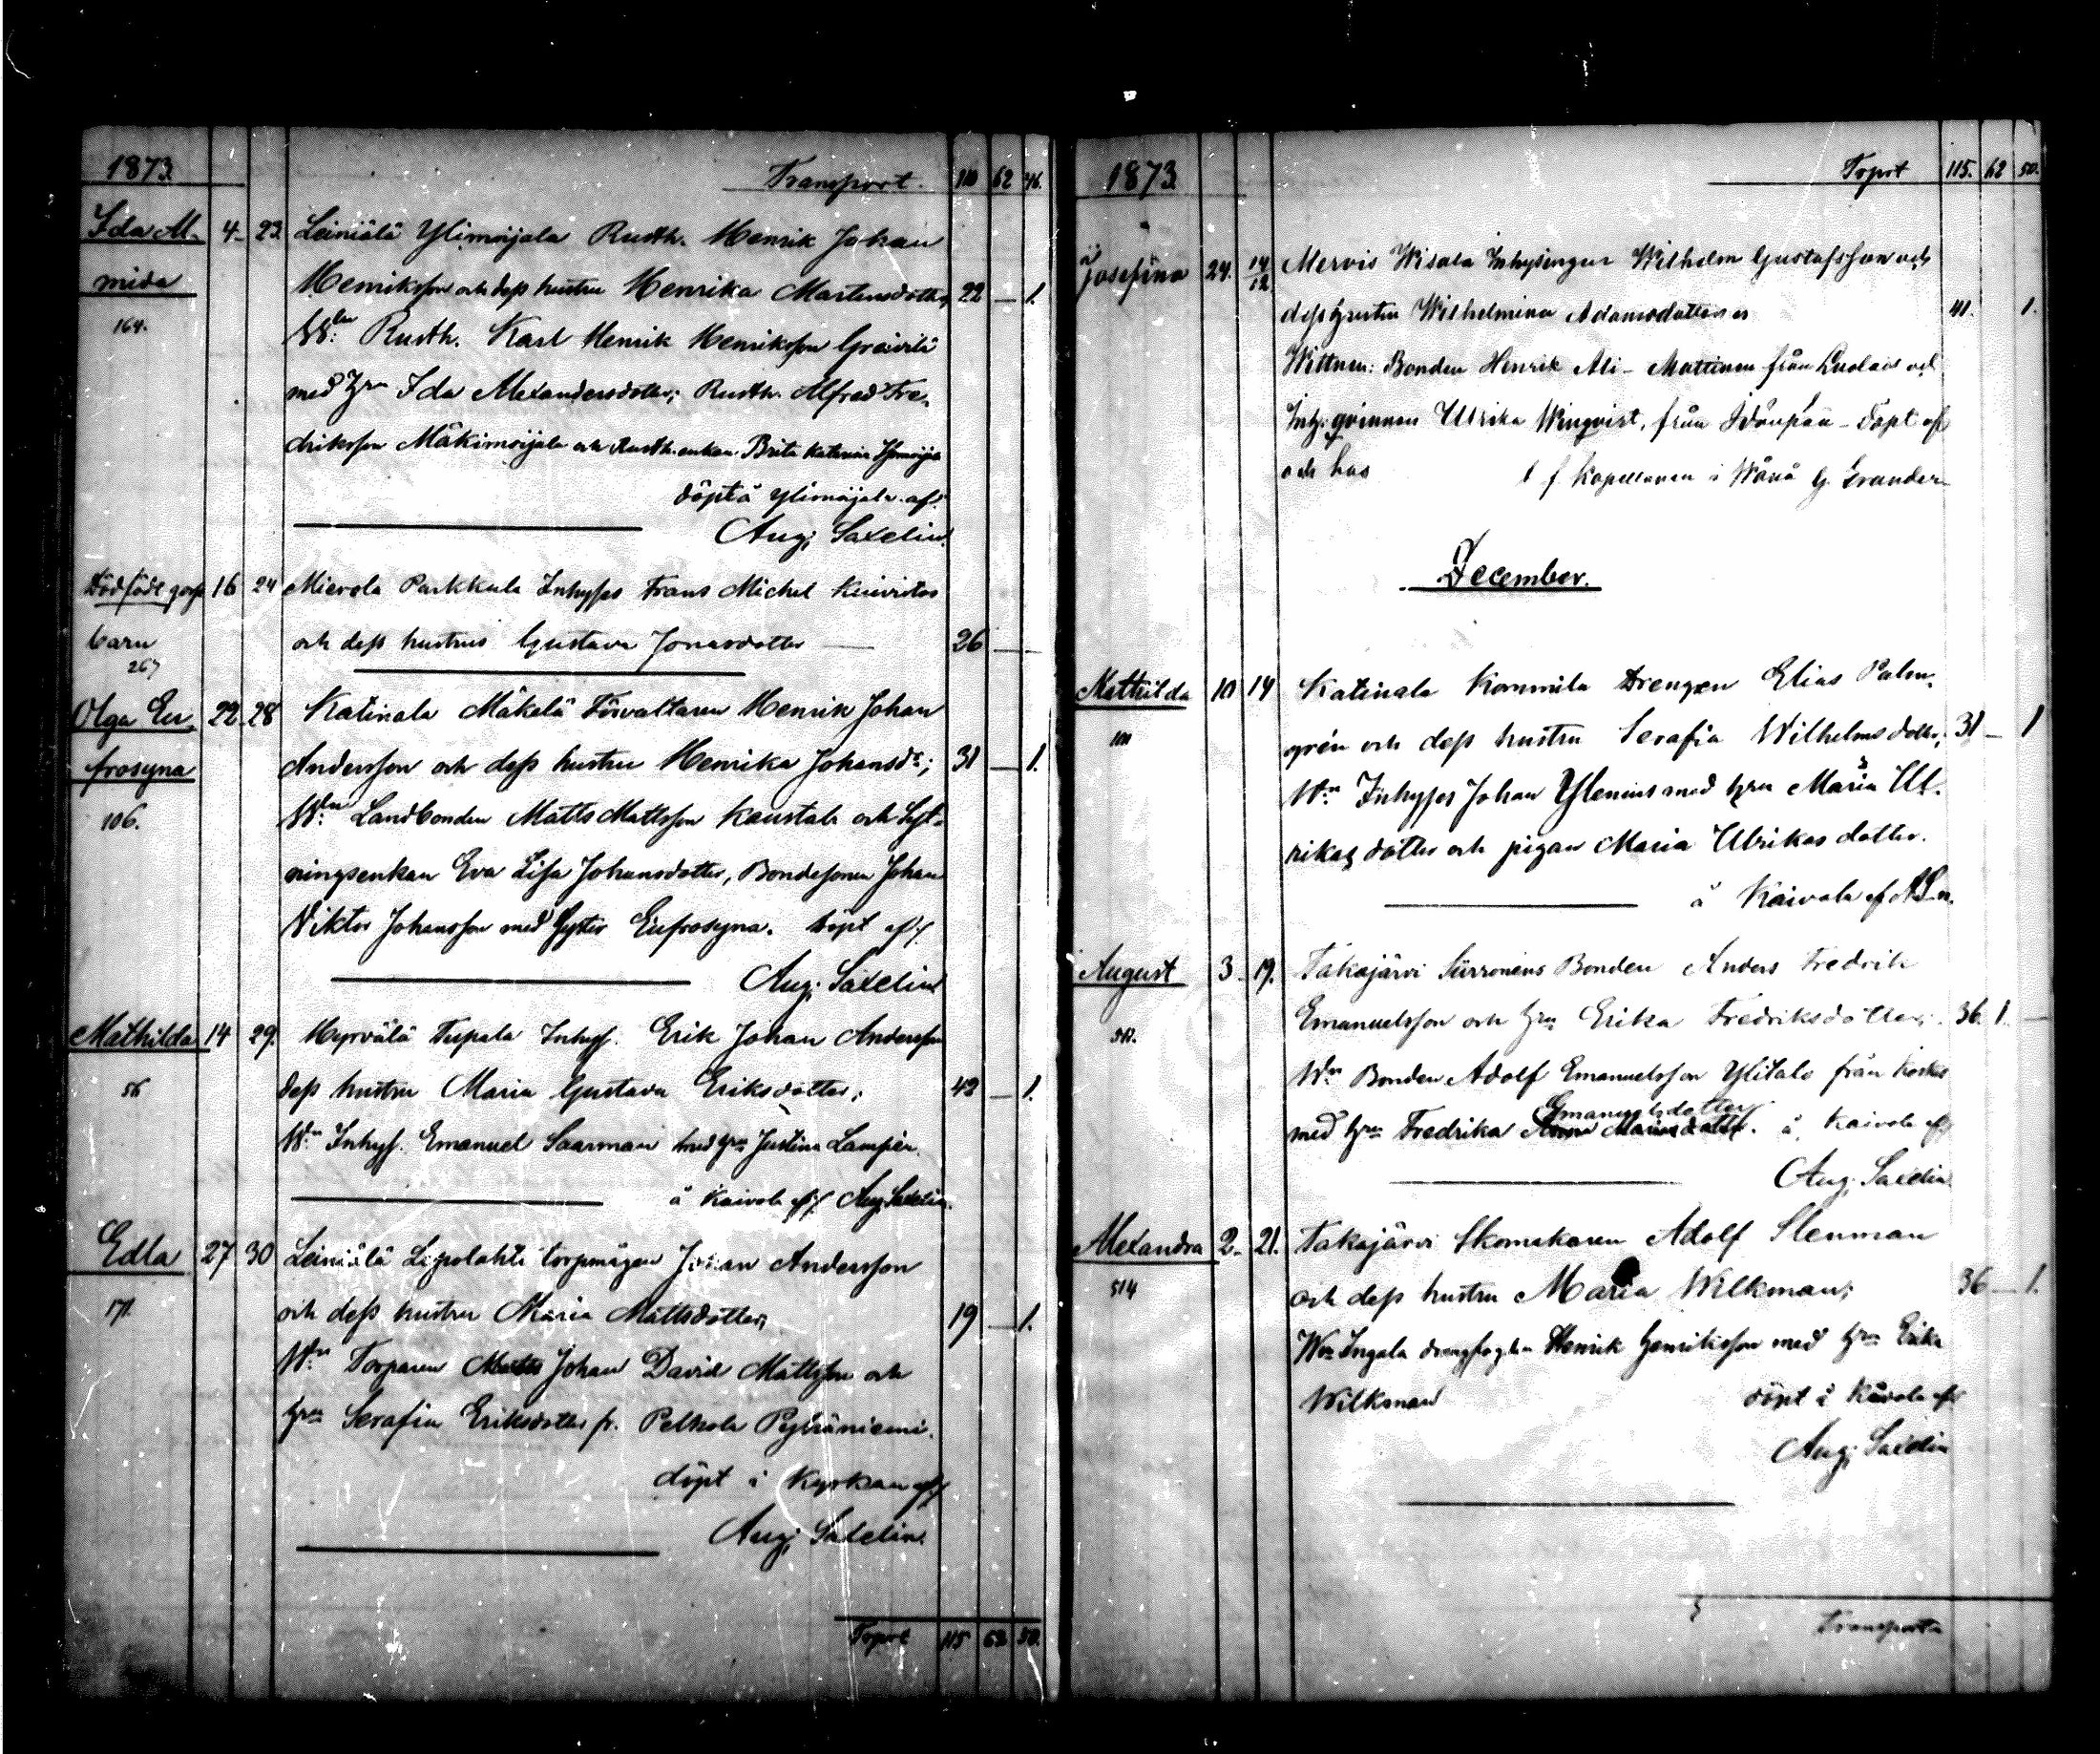 1873.
Transport. 110 62 46.
Ida M. 4. 23. Leiniälä Ylimoijala Rusth. Henrik Johan
mida Henriksson och dess hustru Henrika Mårtensdotter, 22 — 1.
164. W:ne Rusth. Karl Henrik Henriksson Greivilä
med h:n Ida Alexandersdotter; Rusth. Alfred Fre-
driksson Mäkimoijala och Rusth. enkan Brita Katarina
döpt å Ylimoijala af
Aug. Saxelin
Dödfödt 16 24 Mierola Parkkula Inhyses Frans Michel Kiiveitos
barn och dess hustrus Gustava Jonasdotter — 26 —
267
Olga Eu 22. 28 Katinala Mäkelä Förvaltaren Henrik Johan
frosyna Andersson och dess hustru Henrika Johansd:r; 31 — 1.
106. W:ne Landbonden Matts Mattsson Kaustala och Syt-
ningsenkan Eva Lisa Johansdotter, Bondesonen Johan
Viktor Johansson med Syster Eufrosyna. döpt af
Aug. Saxelin
Mathilda 14 29. Myrvälä Tupala Inhys. Erik Johan Andersson
56 dess hustru Maria Gustava Eriksdotter; 42 — 1.
W:n Inhys. Emanuel Saarman med h:n Justina Lampén
å Kaivola af Aug. Saxelin.
Edla 27 30 Leiniälä Lepolahti torpmågen Johan Andersson
171. och dess hustru Maria Mattsdotter, 19 — 1.
W:ne Torparen Johan David Mattsson och
h:n Serafia Eriksdotter fr. Pelkola
döpt i Kyrkan af
Aug. Saxelin.
Tsprt 115 62 50.
1873.
Tsprt 115. 62 50.
Josefina 24. 14/12 Mervis Wisala Inhysingen Wilhelm Gustafsson och
dess hustru Wilhelmina Adamsdotter 41. 1.
Wittnen: Bonden Henrik Ali-Mattinen från och
Inh: qvinnan Ulrika Winqvist, från - Döpt af
och hos t f Kapellanen i Wånå G. Grander
December.
Mathilda 10 14 Katinala Kommila Drengen Elias Palm-
101 grén och dess hustru Serafia Wilhelmsdotter; 31 — 1
W:n Inhyses Johan Ylenius med h:ru Maria Ul-
rikas dotter och pigan Maria Ulrikas dotter.
å Kaivola af
August 3. 19. Takajärvi Siirronens Bonden Anders Fredrik
Emanuelsson och h:n Erika Fredriksdotter; 36. 1. —
W:n Bonden Adolf Emanuelsson Ylitalo från
Emanuelsdotter
med h:n Fredrika å Kaivola af
Aug. Saxelin
Alexandra 2. 21. Takajärvi Skomakaren Adolf Stenman
514 och dess hustru Maria Wilkman; 36 — 1.
W:n Ingala Henrik Henriksson med h:n Erika
Wilkman döpt i Kaivola af
Aug. Saxelin
Transporter